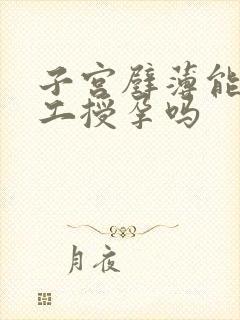 子宫壁薄能
工授孕吗
月夜